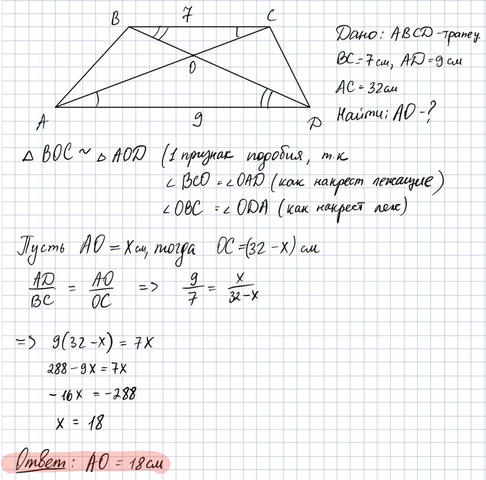 B 7 C
O
A 9 D
Дано: ABCD-трапец.
BC=7см, AD=9см
AC=32см
Найти: AO-?
△ BOC ~ △ AOD (1 признак подобия, т.к
∠ BCO =∠OAD (как накрест лежащие)
∠OBC = ∠ODA (как накрест леж)
Пусть AO = x см, тогда OC =(32-x) см
AD/BC = AO/OC => 9/7 = x/32-x
=> 9(32-x) = 7x
288-9x = 7x
-16x = -288
x = 18
Ответ: AO = 18см